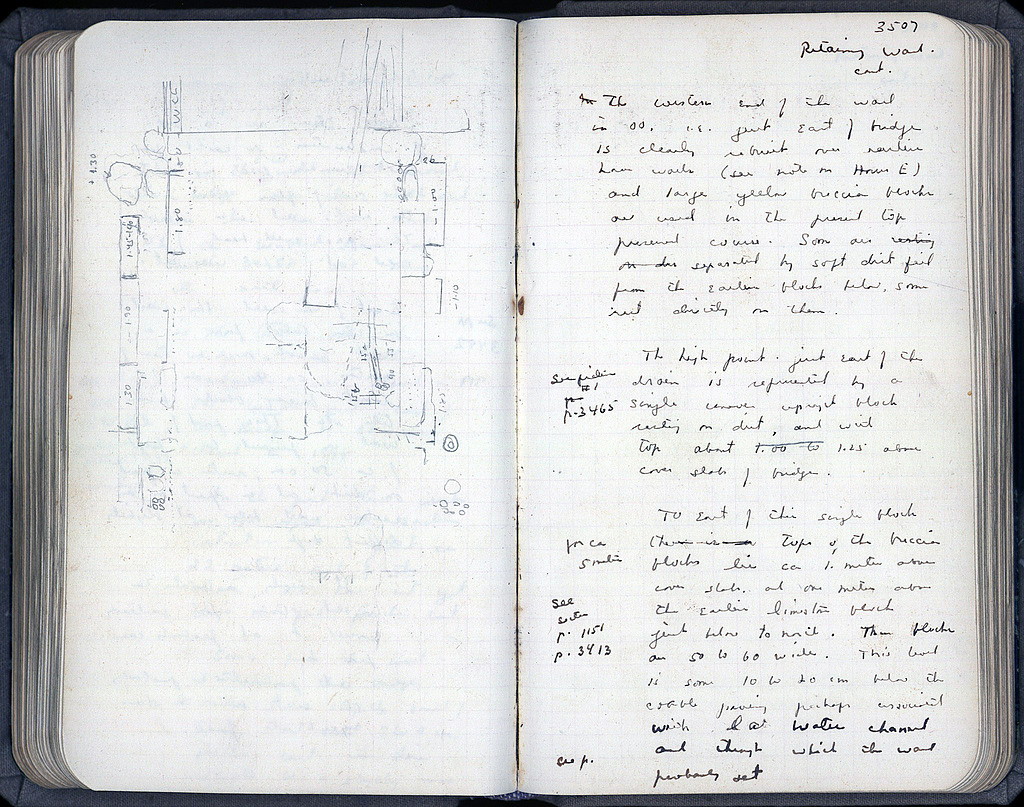 WELL
1.30
1.80
1.45-1.40
-1.00
1.30
-1.30
-1.10
3507
Retaining Wall.
cont.
The western end of the wall
in OO. i.e. just East of bridge
is clearly rebuilt over earlier
house walls (see note on House E)
and large yellow breccia blocks
are used in the present top
preserved course. Some are resting
on dir separated by soft dirt fill
from the Earlier blocks below, some
rest directly on them.
The high point. just East of the
drain is represented by a
#1
p. 3465
single uneven upright block
resting on dirt, and with
top about 1.00 to 1.25 above
cover slabs of bridge.
To East of this single block
for ca
5 meters
there is a Tops of the breccia
blocks lie ca 1. meter above
cover slabs. at one meter above
the Earlier limestone block
see
section
p. 1151
p. 3413
just below to north. These blocks
are 50 to 60 wide. This level
is some 10 to 20 cm below the
cobble paving perhaps associated
with Lat water channel
and through which the wall
see p.
probably set